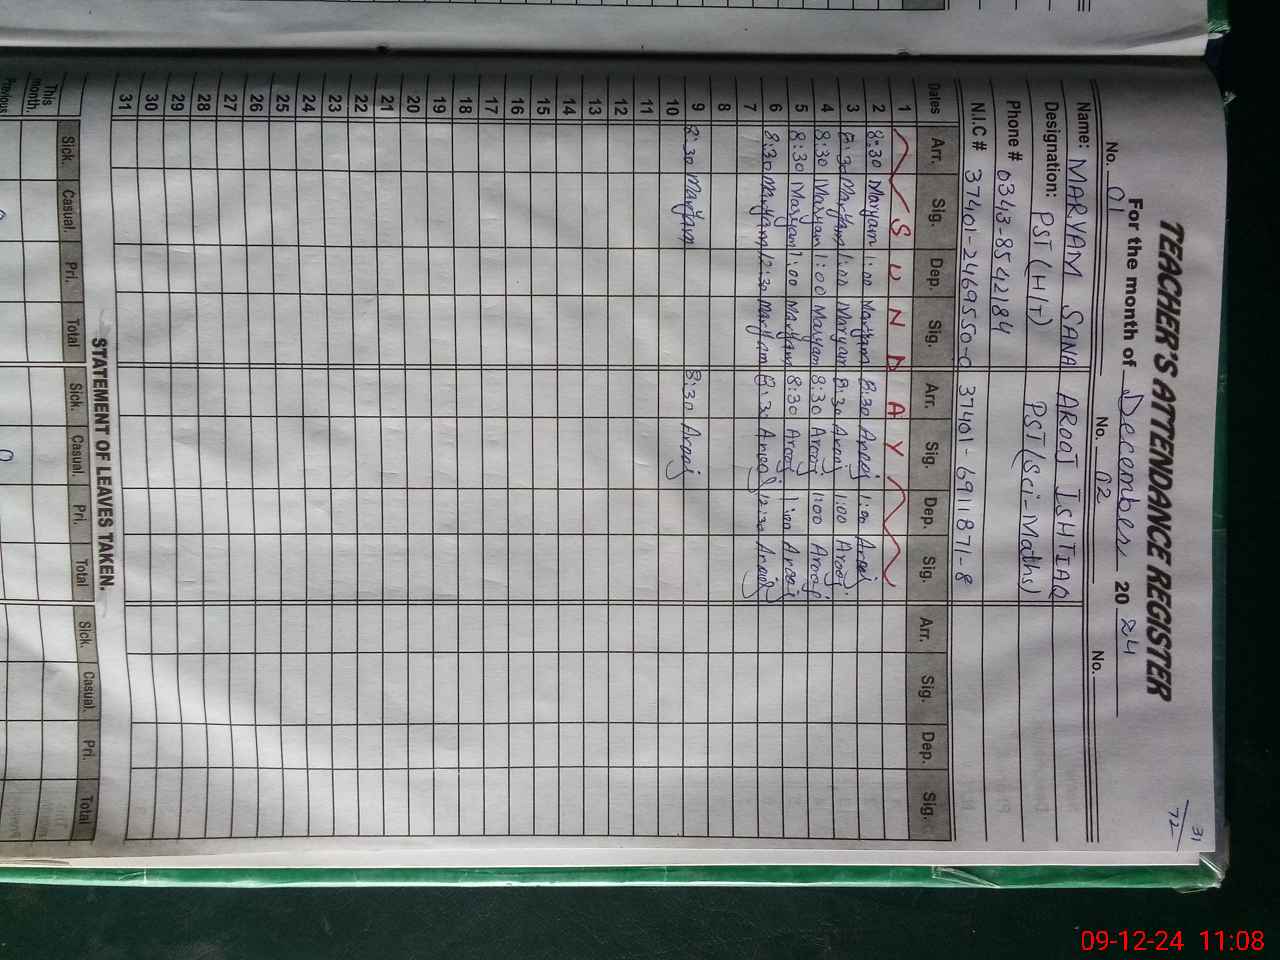 31
72
TEACHER'S ATTENDANCE REGISTER
For the month of December 20 24
No. 01 No. 02 No.
Name: MARYAM SANA AROOJ ISHTIAQ
Designation: PST (H/T) PST (Sci-Maths)
Phone # 0343-8542184
N.I.C # 37401-2469550-0 37401-6911871-8
Dates Arr. Sig. Dep. Sig. Arr. Sig. Dep. Sig. Arr. Sig. Dep. Sig.
1 S U N D A Y
2 8:30 Maryam 1:00 Maryam 8:30 Arooj 1:00 Arooj
3 8:30 Maryam 1:00 Maryam 8:30 Arooj 1:00 Arooj
4 8:30 Maryam 1:00 Maryam 8:30 Arooj 1:00 Arooj
5 8:30 Maryam 1:00 Maryam 8:30 Arooj 1:00 Arooj
6 8:30 Maryam 12:30 Maryam 8:30 Arooj 12:30 Arooj
7
8
9 8:30 Maryam 8:30 Arooj
10
11
12
13
14
15
16
17
18
19
20
21
22
23
24
25
26
27
28
29
30
31
STATEMENT OF LEAVES TAKEN.
Sick. Casual. Pri. Total Sick. Casual. Pri. Total Sick. Casual. Pri. Total
This month.
Previous
09-12-24 11:08